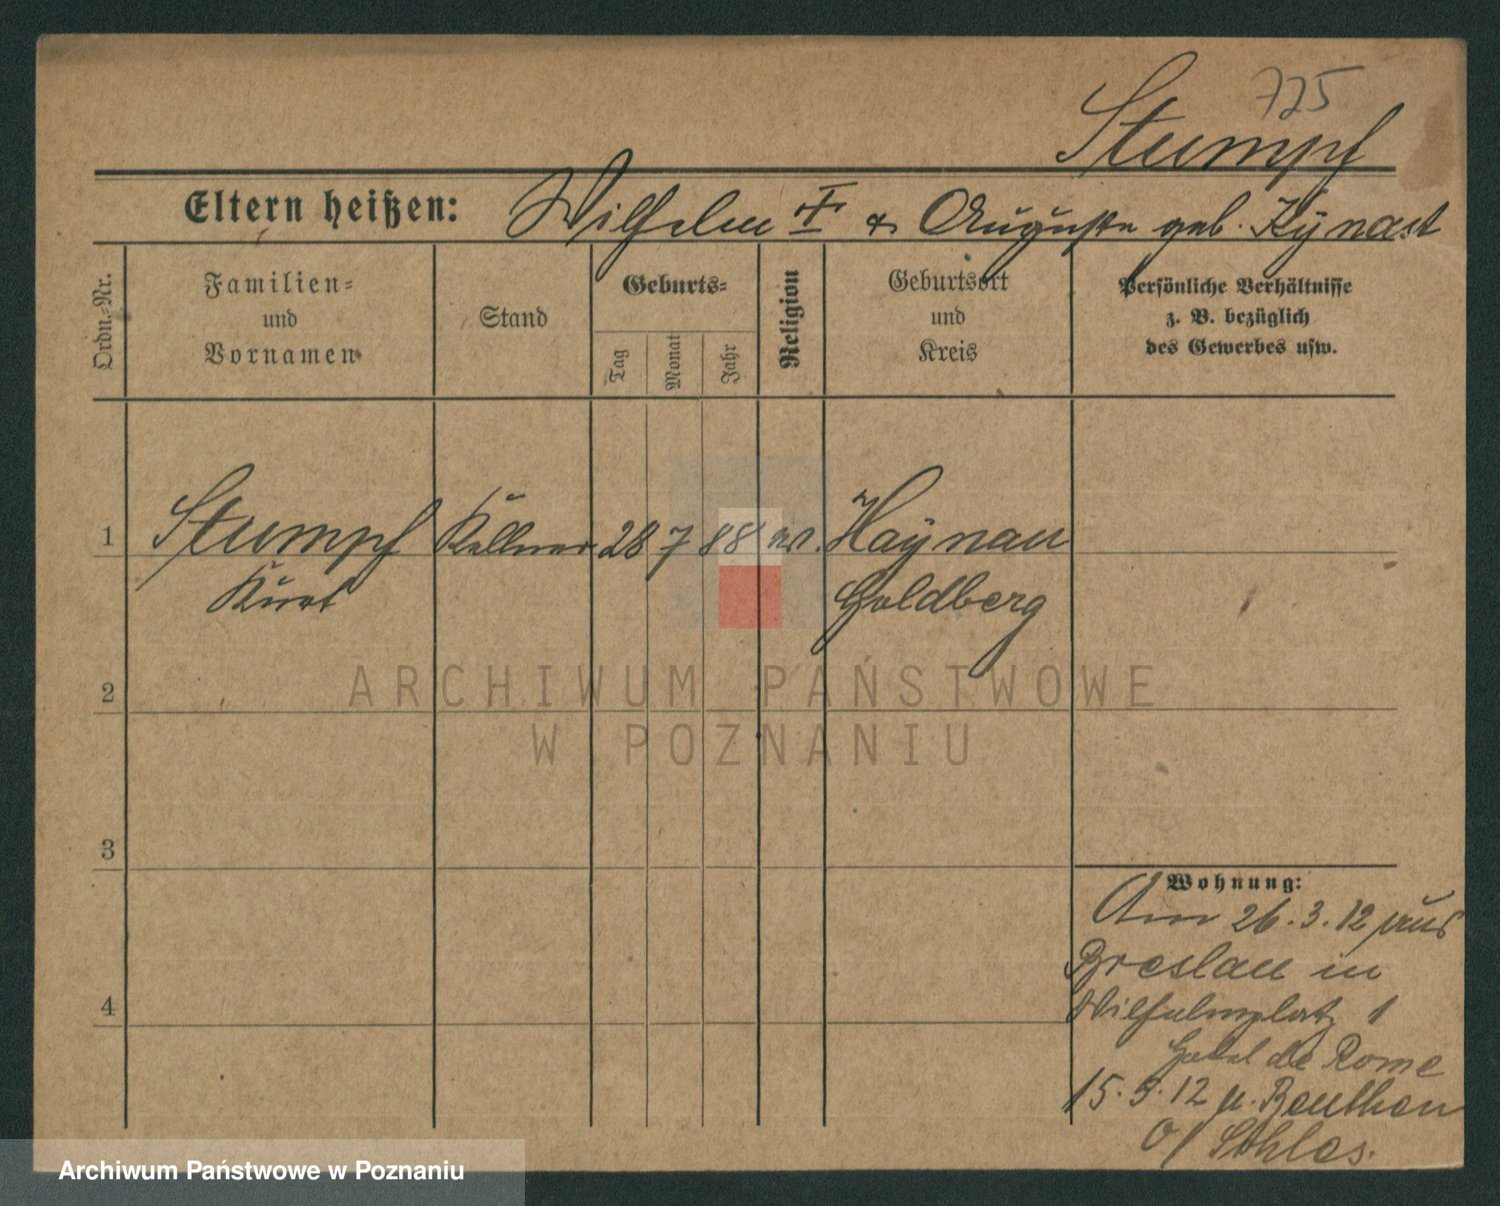 725
Stumpf
Eltern heißen: Wilhelm † & Auguste geb. Kÿnast
Ordn.-Nr.
Familien-
und
Vornamen
Stand
Geburts-
Tag
Monat
Jahr
Religion
Geburtsort
und
Kreis
Persönliche Verhältnisse
z. B. bezüglich
des Gewerbes usw.
1 Stumpf Kellner 28 7 88 ev. Haÿnau
Kurt Goldberg
2
ARCHIWUM PAŃSTWOWE
W POZNANIU
3
4
Wohnung:
Am 26.3.12 aus
Breslau in
Wilhelmplatz 1
Hotel de Rome
15.5.12 n. Beuthen
O/ Schles.
Archiwum Państwowe w Poznaniu